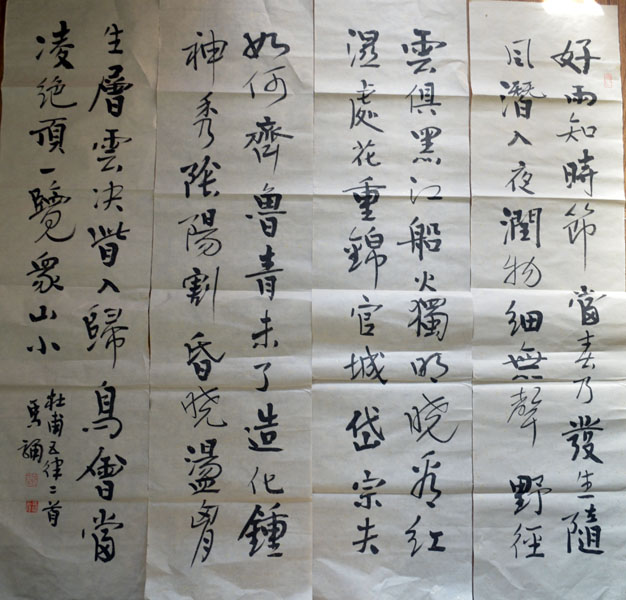 好雨知時節當春乃發生隨
風潛入夜潤物細無聲野徑
雲俱黑江船火獨明曉看紅
濕處花重錦官城岱宗夫
如何齊魯青未了造化鍾
神秀陰陽割昏曉盪胸
生層雲決眥入歸鳥會當
凌絕頂一覽眾山小
杜甫五律二首